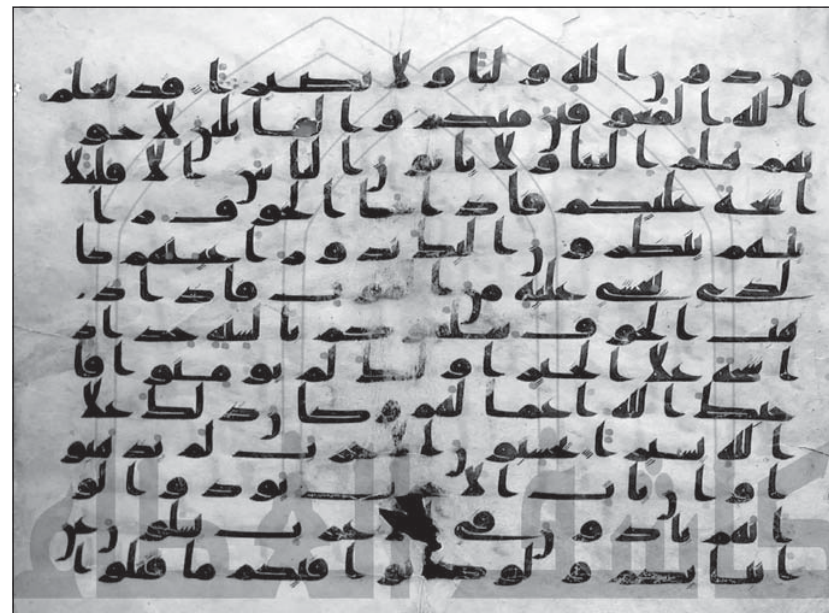 من دون الله وليا ولا نصيرا قد يعلم
الله المعوقين منكم والقائلين لاخو
نهم هلم الينا ولا ياتون الباس الا قليلا
اشحة عليكم فاذا جا الخوف را
يتهم ينظرون اليك تدور اعينهم كا
لذي يغشى عليه من الموت فاذا ذ
هب الخوف سلقوكم بالسنة حداد
اشحة علا الخير اولئك لم يومنوا فا
حبط الله اعملهم وكان ذلك علا
الله يسيرا يحسبون الاحزاب لم يذهبو
ا وان يات الاحزاب يودوا لو
انهم بادون في الاعراب يسلون عن
انبايكم ولو كانوا فيكم ما قتلوا
كاشف الغطاء